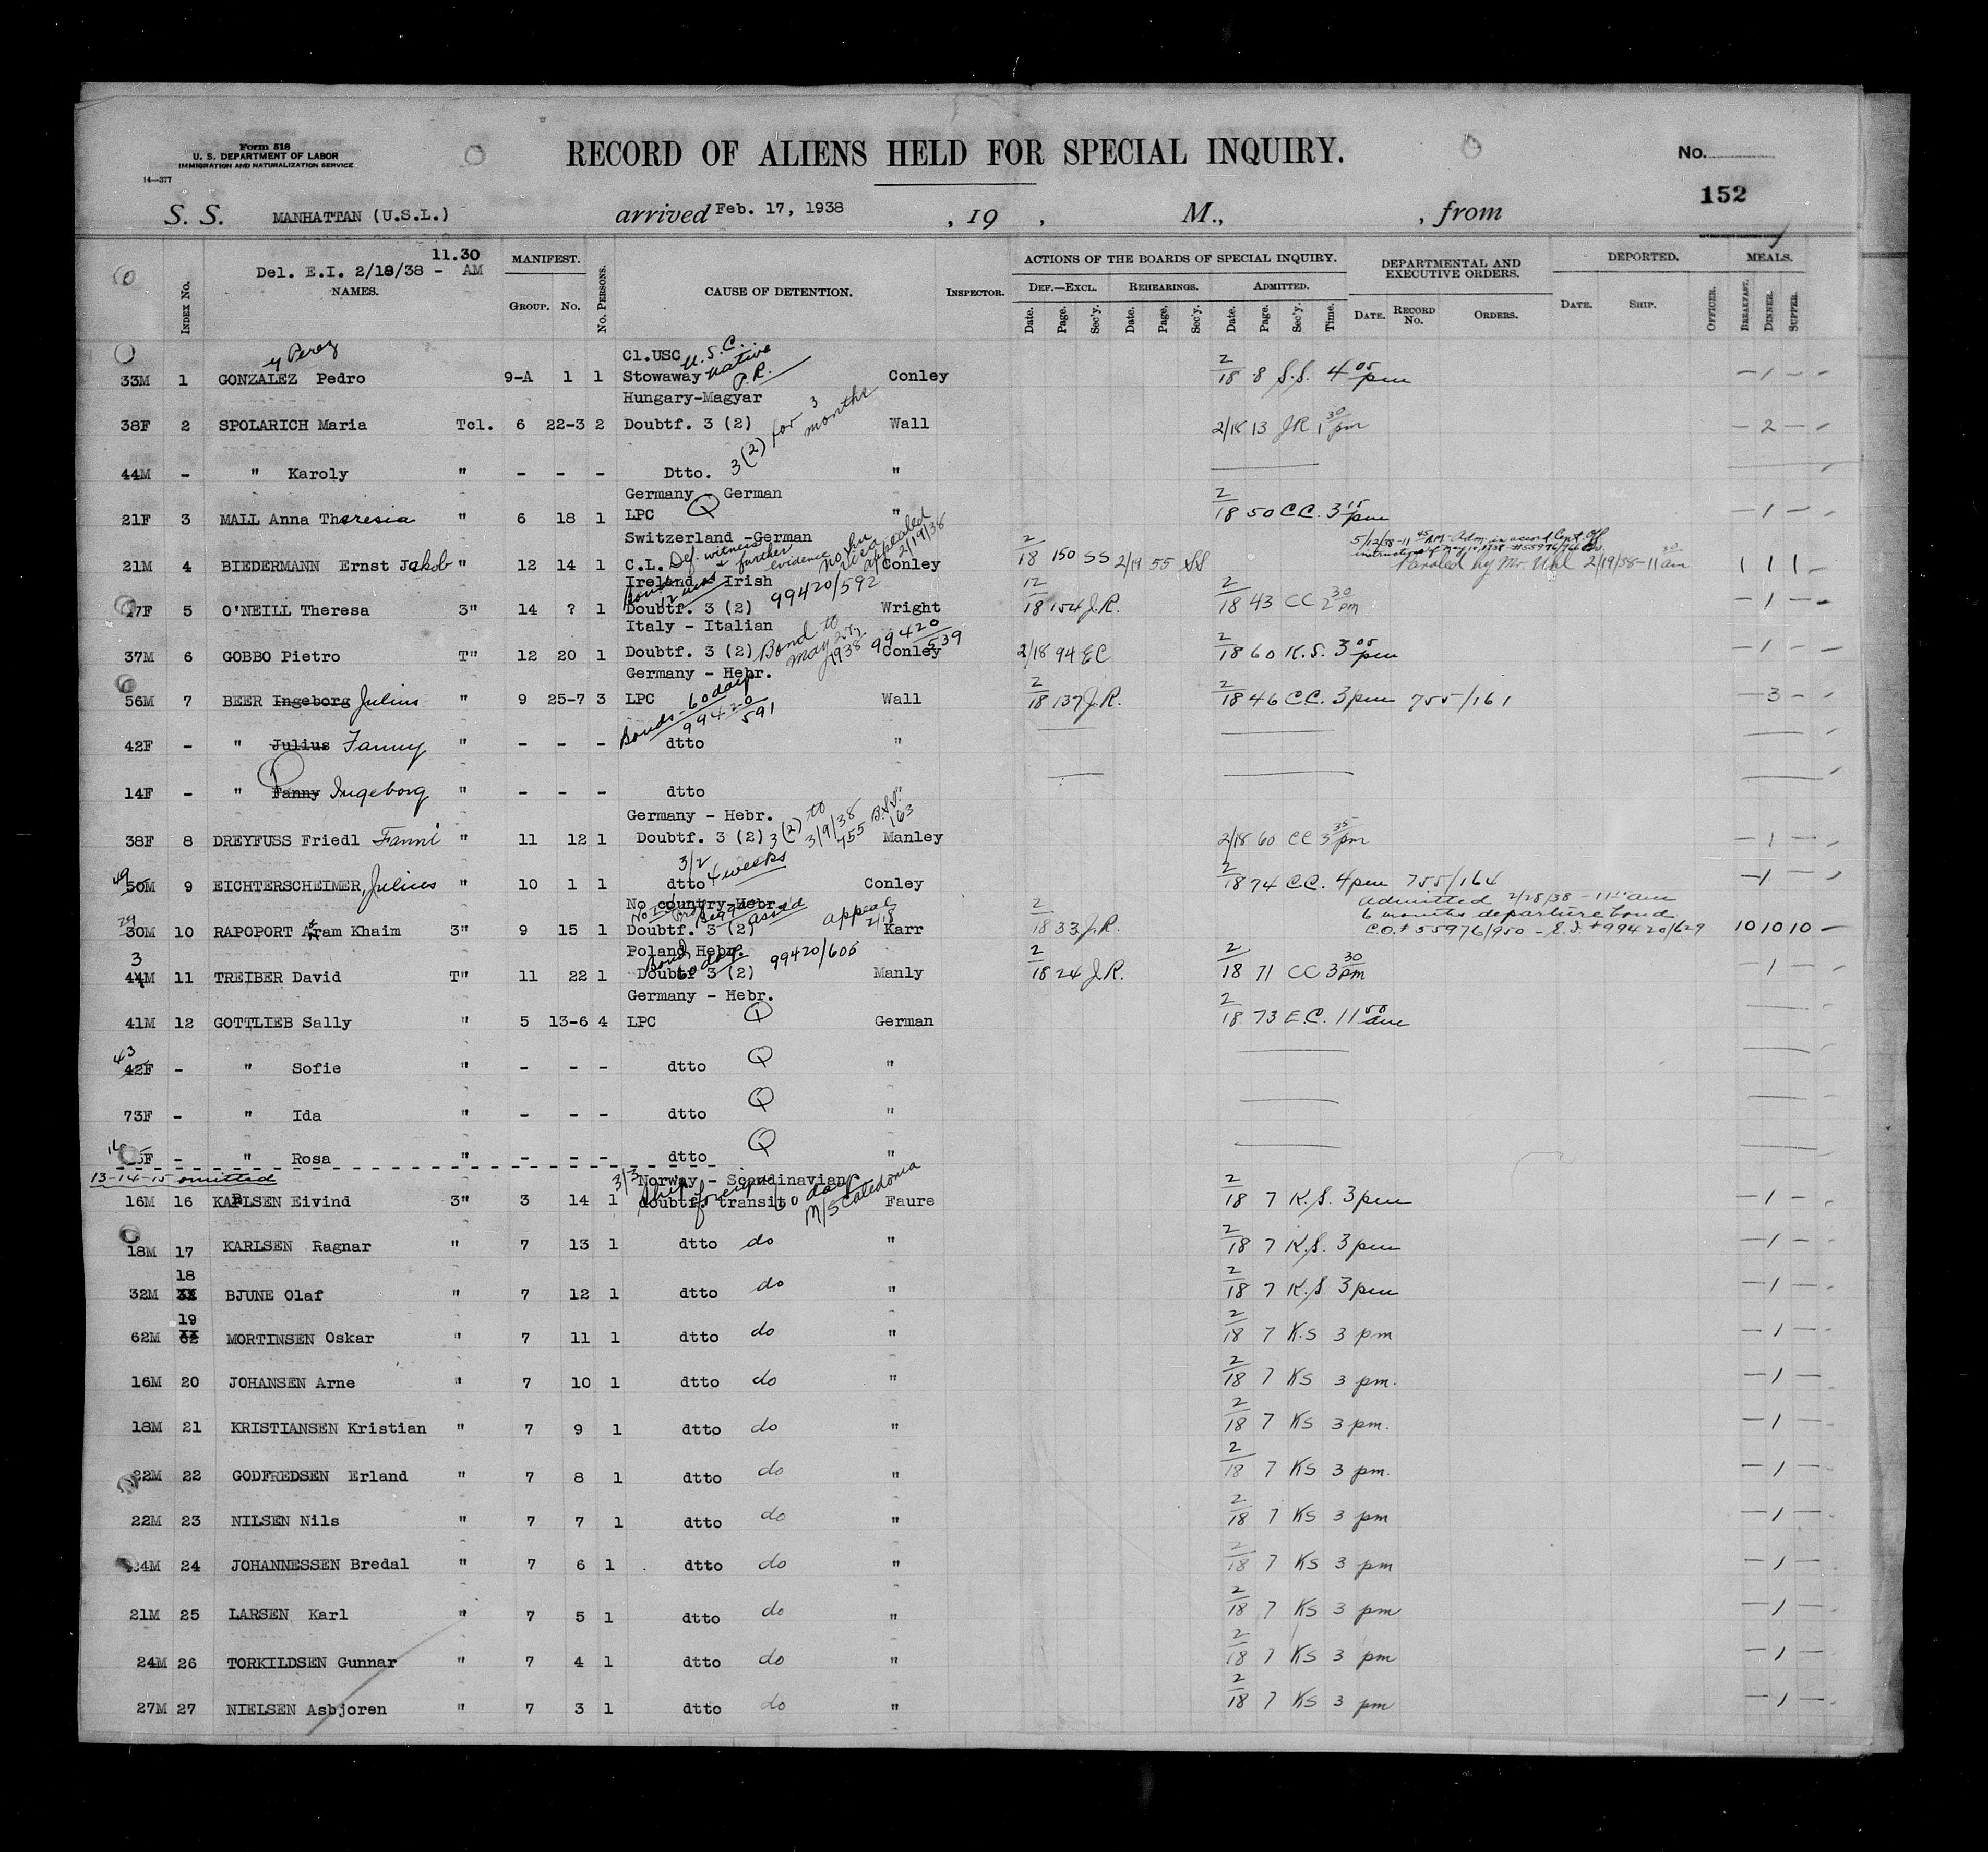 Form 518
U. S. DEPARTMENT OF LABOR
IMMIGRATION AND NATURALIZATION SERVICE
14—377
RECORD OF ALIENS HELD FOR SPECIAL INQUIRY.
No.
152
S. S. MANHATTAN (U.S.L.) arrived Feb. 17, 1938 , 19 , M., , from
INDEX No.
Del. E.I. 2/18/38 - 11.30 AM
NAMES.
MANIFEST.
GROUP. No.
No. PERSONS.
CAUSE OF DETENTION.
INSPECTOR.
ACTIONS OF THE BOARDS OF SPECIAL INQUIRY.
DEF.—EXCL. REHEARINGS. ADMITTED.
Date. Page. Sec'y. Date. Page. Sec'y. Date. Page. Sec'y. Time.
DEPARTMENTAL AND EXECUTIVE ORDERS.
DATE. RECORD No. ORDERS.
DEPORTED.
DATE. SHIP. OFFICER.
MEALS.
BREAKFAST. DINNER. SUPPER.
y Perez Cl.USC U.S.C. native P.R.
33M 1 GONZALEZ Pedro 9-A 1 1 Stowaway Conley 2/18 8 S.S. 4 05 pm — 1 —
Hungary-Magyar
38F 2 SPOLARICH Maria Tcl. 6 22-3 2 Doubtf. 3 (2) 3(2) for 3 months Wall 2/18 13 JR 1 30 pm — 2 —
44M - " Karoly " - - - Dtto. "
Germany - German
21F 3 MALL Anna Theresia " 6 18 1 LPC Q " 2/18 50 C.C. 3 15 pm — 1 —
Switzerland -German
21M 4 BIEDERMANN Ernst Jakob " 12 14 1 C.L. Def. witness & further evidence no Im visa appealed 2/19/38 Conley 2/18 150 SS 2/19 55 SS 5/12/38-11 45 AM Paroled by Mr. Uhl 2/19/38-11 30 am 1 1 1
Ireland - Irish
17F 5 O'NEILL Theresa 3" 14 ? 1 Doubtf. 3 (2) 99420/592 Wright 154 J.R. 2/18 43 CC 2 30 pm — 1 —
Italy - Italian
37M 6 GOBBO Pietro T" 12 20 1 Doubtf. 3 (2) Bond to May 27, 1938 99420/539 Conley 2/18 94 EC 2/18 60 K.S. 3 05 pm — 1 —
Germany - Hebr.
56M 7 BEER Ingeborg Julius " 9 25-7 3 LPC Bonds-60 days 99420/591 Wall 2/18 137 J.R. 2/18 46 C.C. 3 pm 755/161 — 3 —
42F - " Julius Fanny " - - - dtto "
14F - " Fanny Ingeborg " - - - dtto
Germany - Hebr.
38F 8 DREYFUSS Friedl Fanni " 11 12 1 Doubtf. 3 (2) 3(2) to 3/9/38 755/163 Manley 2/18 60 CC 3 35 pm — 1 —
3/2 4 weeks
49 50M 9 EICHTERSCHEIMER, Julius " 10 1 1 dtto Conley 2/18 74 C.C. 4 pm 755/164 — 1 —
No country-Hebr. admitted 2/28/38 - 11 am
29 30M 10 RAPOPORT Aram Khaim 3" 9 15 1 Doubtf. 3 (2) appeal 2/18 Karr 2/18 33 J.R. 6 months departure bond 10 10 10 —
C.O.# 55976/950 - E.I. # 99420/629
Poland Hebr.
3 44M 11 TREIBER David T" 11 22 1 Doubtf 3 (2) Bond 60 days 99420/605 Manly 2/18 24 J.R. 2/18 71 CC 3 30 pm — 1 —
Germany - Hebr.
41M 12 GOTTLIEB Sally " 5 13-6 4 LPC Q German 2/18 73 E.C. 11 50 am
43 42F - " Sofie " - - - dtto Q "
73F - " Ida " - - - dtto Q "
- " Rosa " - - - dtto Q "
13-14-15 omitted
3/3 Norway - Scandinavian
16M 16 KARLSEN Eivind 3" 3 14 1 doubtf. transit Ship foreign 60 days M/S Caledonia Faure 2/18 7 K.S. 3 pm — 1 —
18M 17 KARLSEN Ragnar " 7 13 1 dtto do " 2/18 7 K.S. 3 pm — 1 —
32M 18 BJUNE Olaf " 7 12 1 dtto do " 2/18 7 K.S 3 pm — 1 —
62M 19 MORTINSEN Oskar " 7 11 1 dtto do " 2/18 7 K.S 3 pm — 1 —
16M 20 JOHANSEN Arne " 7 10 1 dtto do " 2/18 7 KS 3 pm. — 1 —
18M 21 KRISTIANSEN Kristian " 7 9 1 dtto do " 2/18 7 KS 3 pm. — 1 —
22M 22 GODFREDSEN Erland " 7 8 1 dtto do " 2/18 7 KS 3 pm. — 1 —
22M 23 NILSEN Nils " 7 7 1 dtto do " 2/18 7 KS 3 pm — 1 —
24M 24 JOHANNESSEN Bredal " 7 6 1 dtto do " 2/18 7 KS 3 pm — 1 —
21M 25 LARSEN Karl " 7 5 1 dtto do " 2/18 7 KS 3 pm — 1 —
24M 26 TORKILDSEN Gunnar " 7 4 1 dtto do " 2/18 7 KS 3 pm — 1 —
27M 27 NIELSEN Asbjoren " 7 3 1 dtto do " 2/18 7 KS 3 pm — 1 —